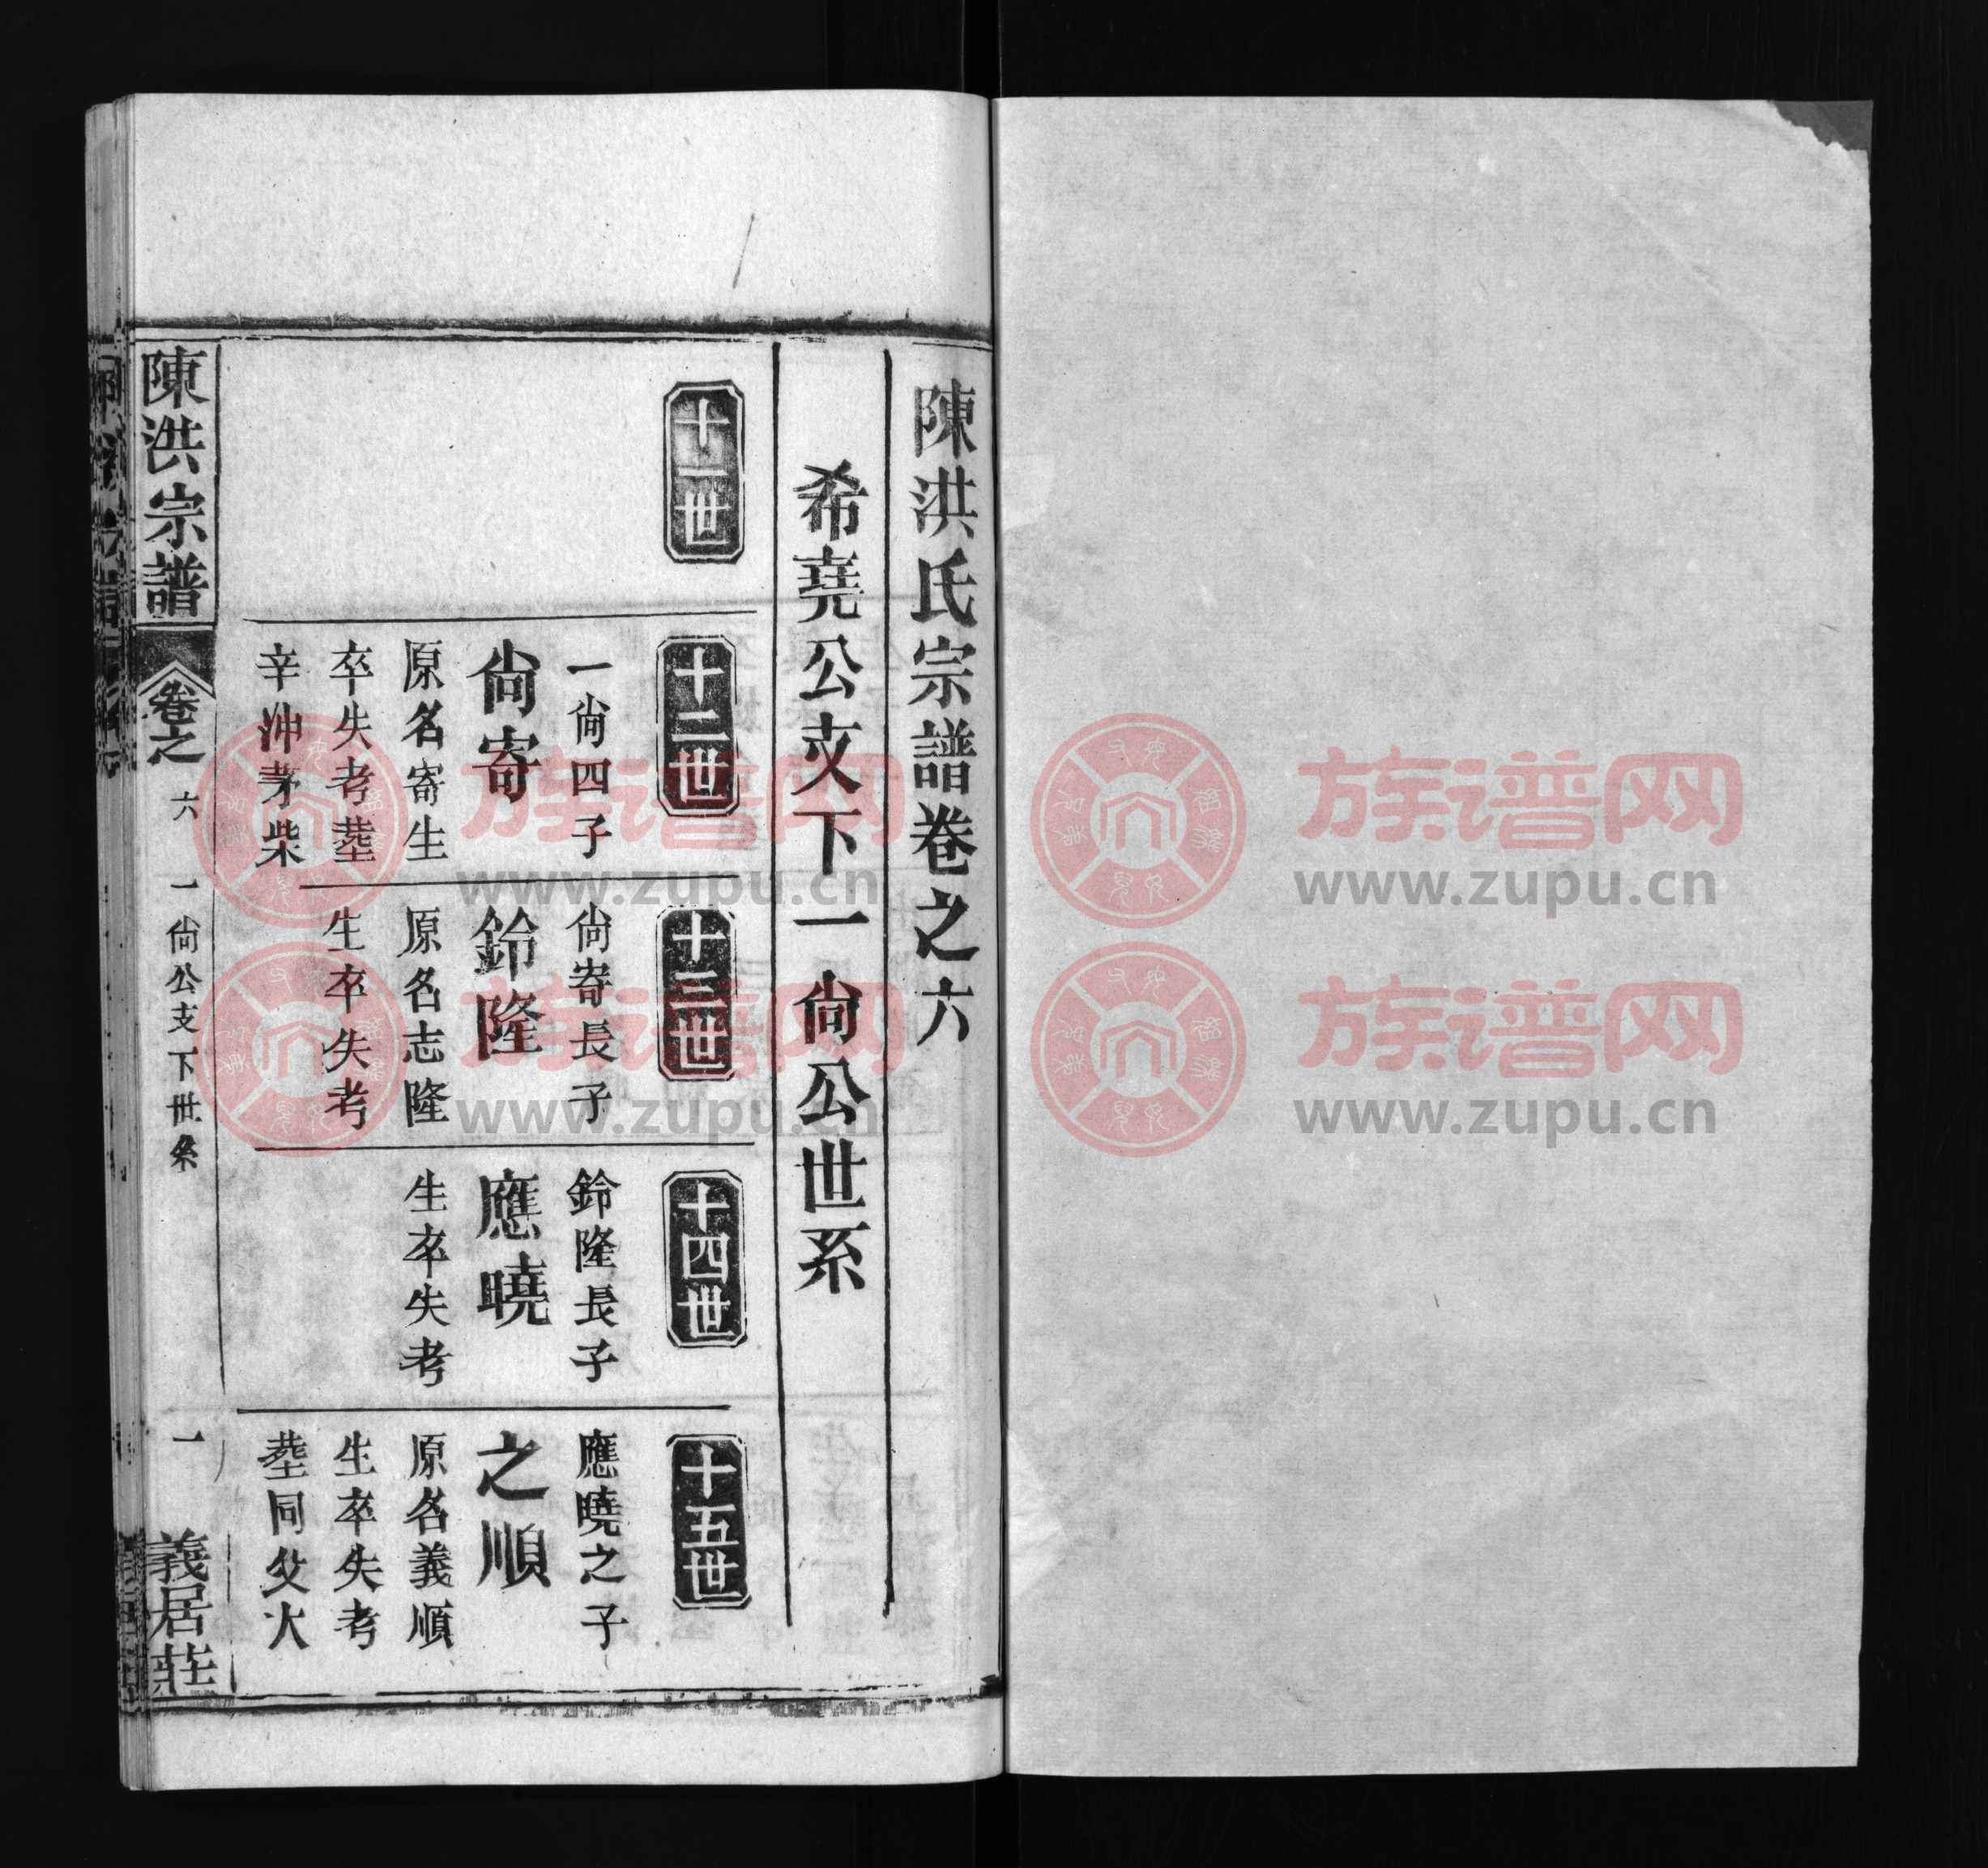 陳洪氏宗譜卷之六
希堯公支下一尙公世系
十一世
十二世
一尙四子
尙寄
原名寄生
卒失考塟
辛沖茅柴
十三世
尙寄長子
鈴隆
原名志隆
生卒失考
十四世
鈴隆長子
應曉
生卒失考
十五世
應曉之子
之順
原名義順
生卒失考
塟同父大
陳洪宗譜
卷之六
一尙公支下世系
一
義居莊
族谱网
www.zupu.cn
族谱网
www.zupu.cn
族谱网
www.zupu.cn
族谱网
www.zupu.cn